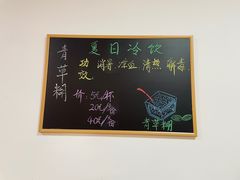 夏日冷饮
青草糊
功效:消暑.凉血.清热.解毒
价:5元/杯
20元/
40元/
青草糊